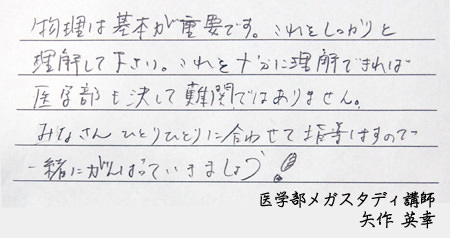 物理は基本が重要です。これをしっかりと
理解して下さい。これを十分に理解できれば
医学部も決して難関ではありません。
みなさんひとりひとりに合わせて指導しますので
一緒にがんばっていきましょう!
医学部メガスタディ講師
矢作 英幸